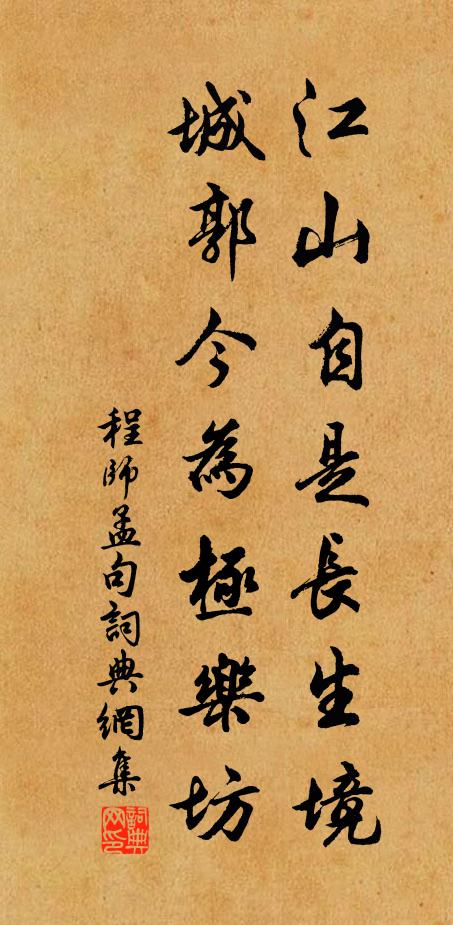 江山自是長生境
城郭今為極樂坊
程師孟句詞典網集
詞典网印